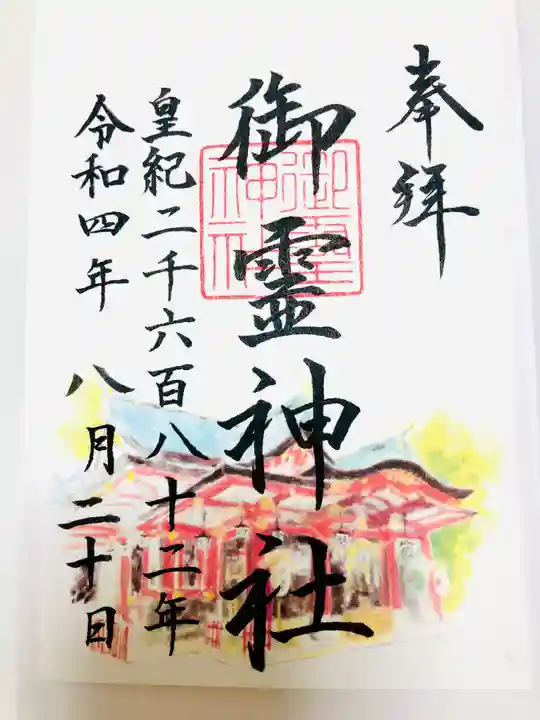 奉拝
御霊神社
御霊神社
皇紀二千六百八十二年
令和四年 八月二十日